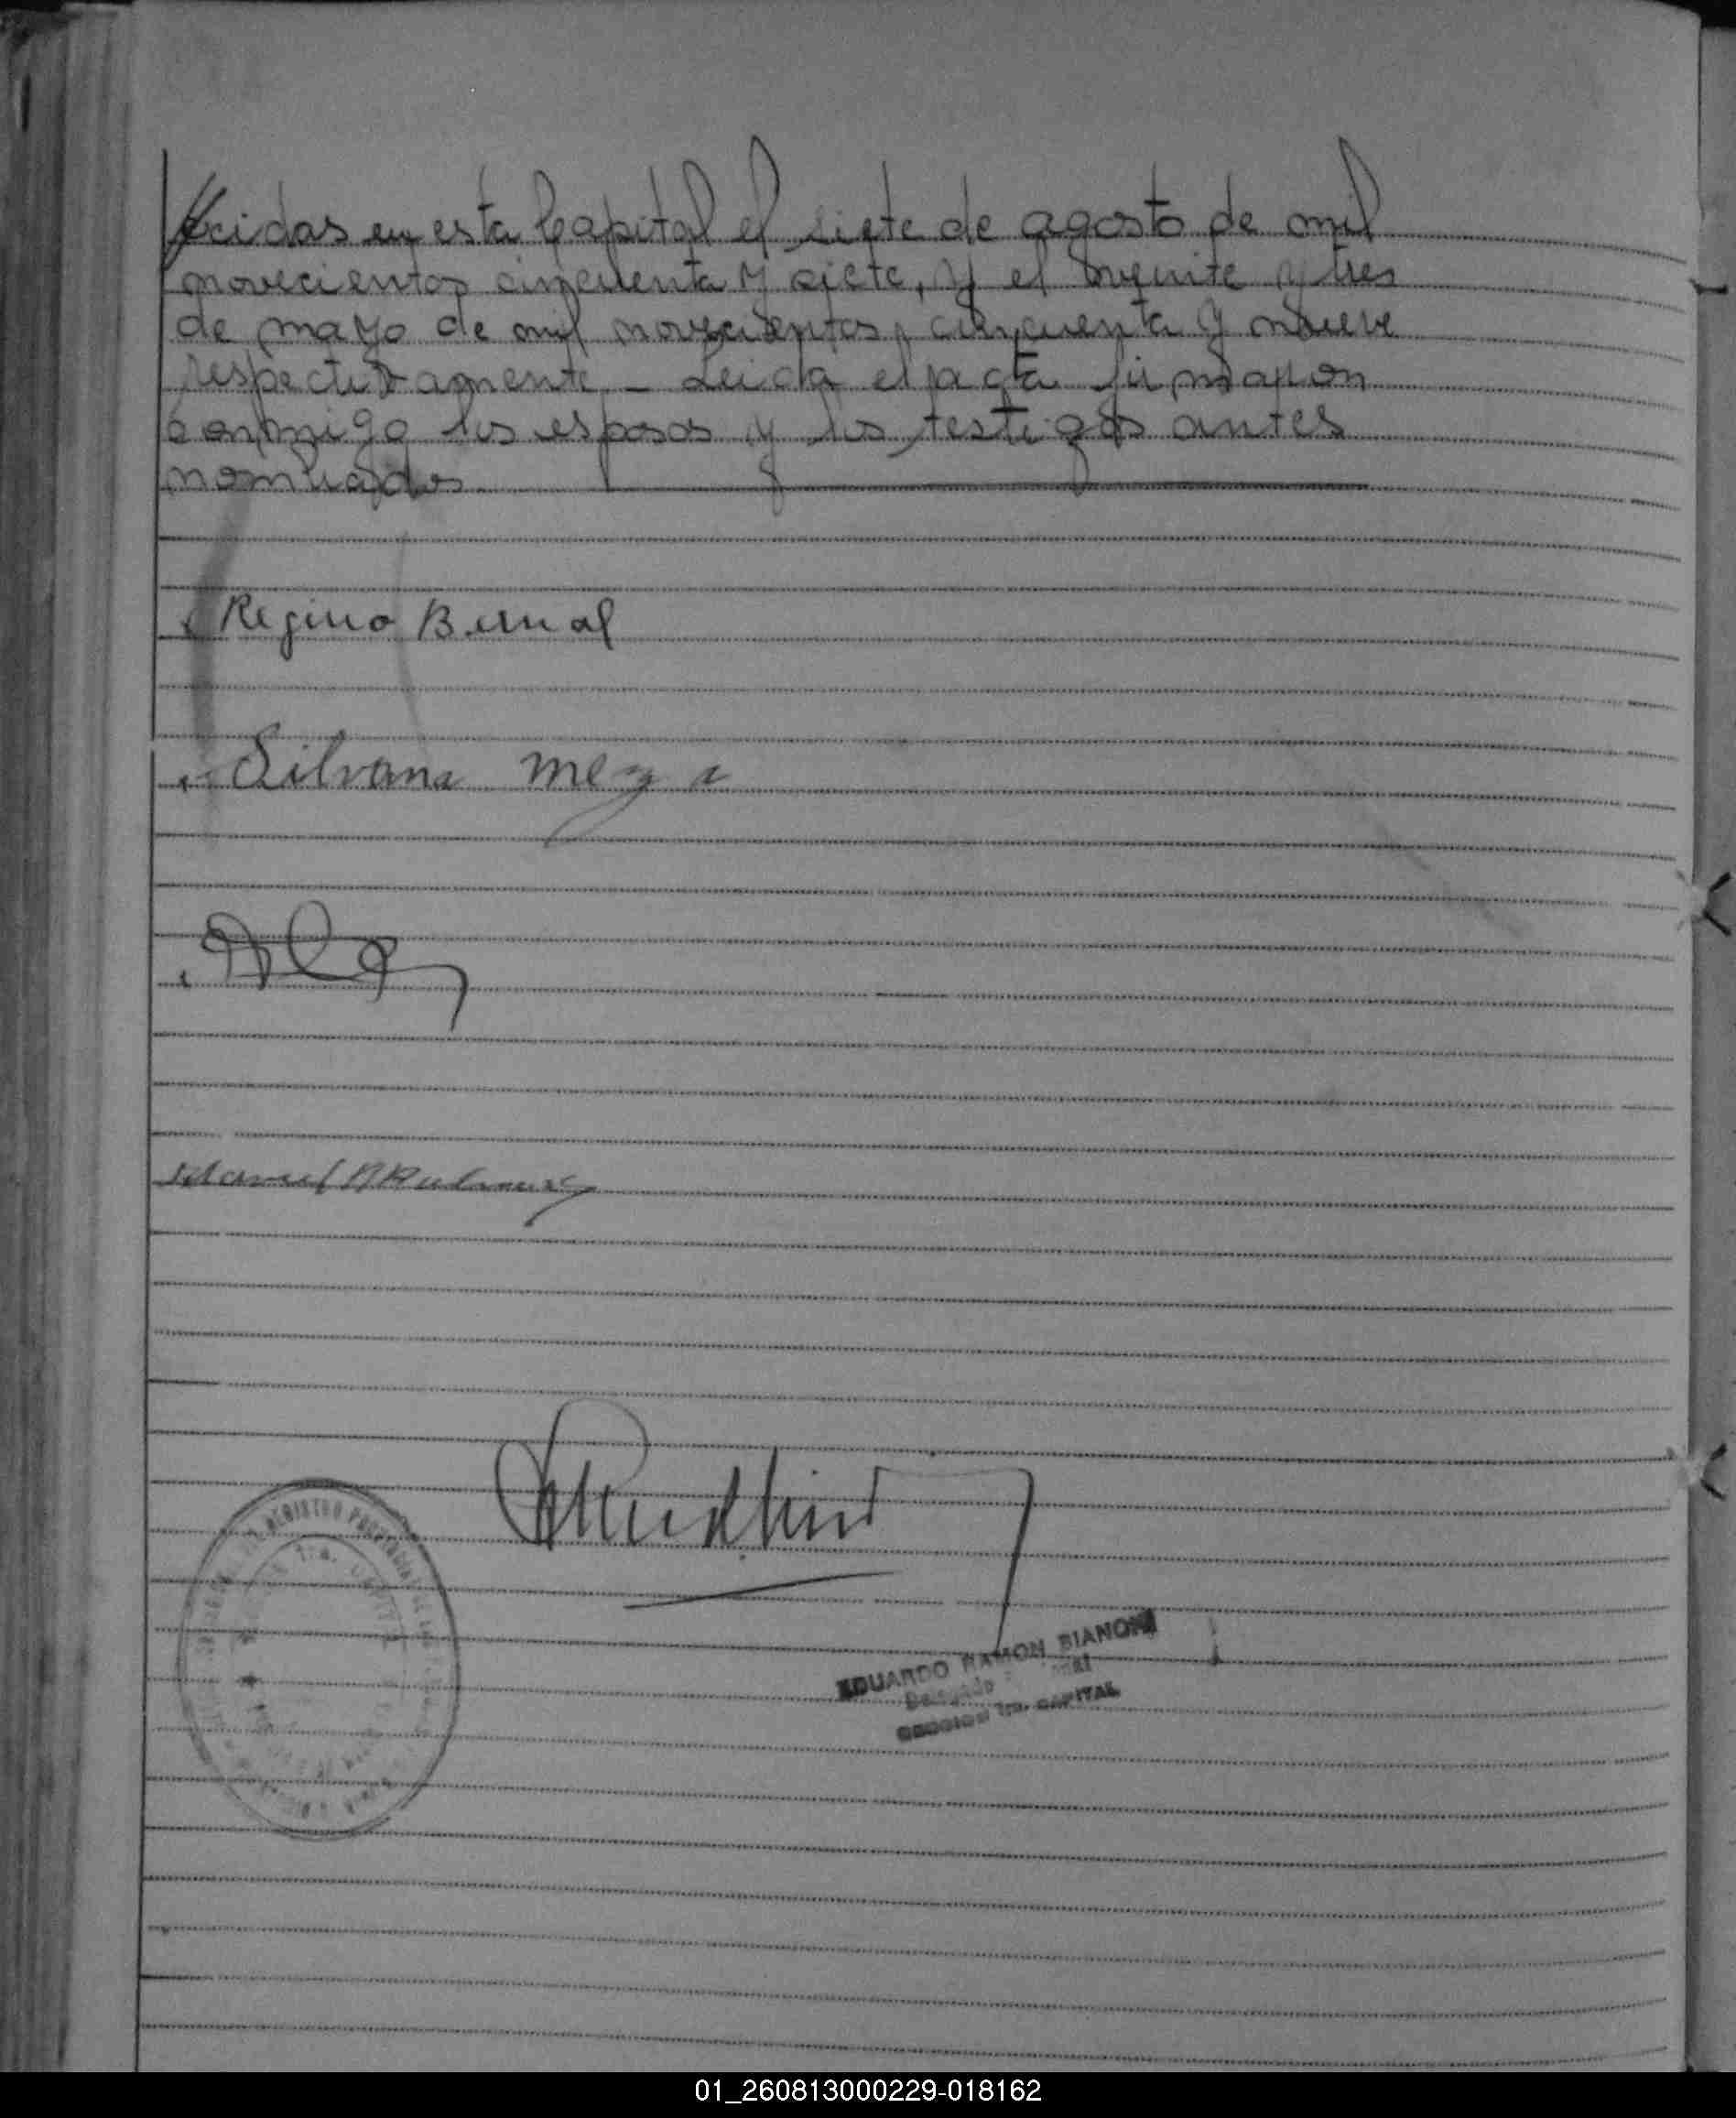 cidas en esta Capital el siete de agosto de mil
novecientos cincuenta y siete, y el veinte y tres
de mayo de mil novecientos cincuenta y nueve
respectivamente - Leida el acta firmaron
conmigo los esposos y los testigos antes
nombrados
Regino Bernal
Silvana Meza
REGISTRO PROVINCIAL DE
EDUARDO RAMON BIANONI
Delegado
SECCION 1ra. CAPITAL
01_260813000229-018162